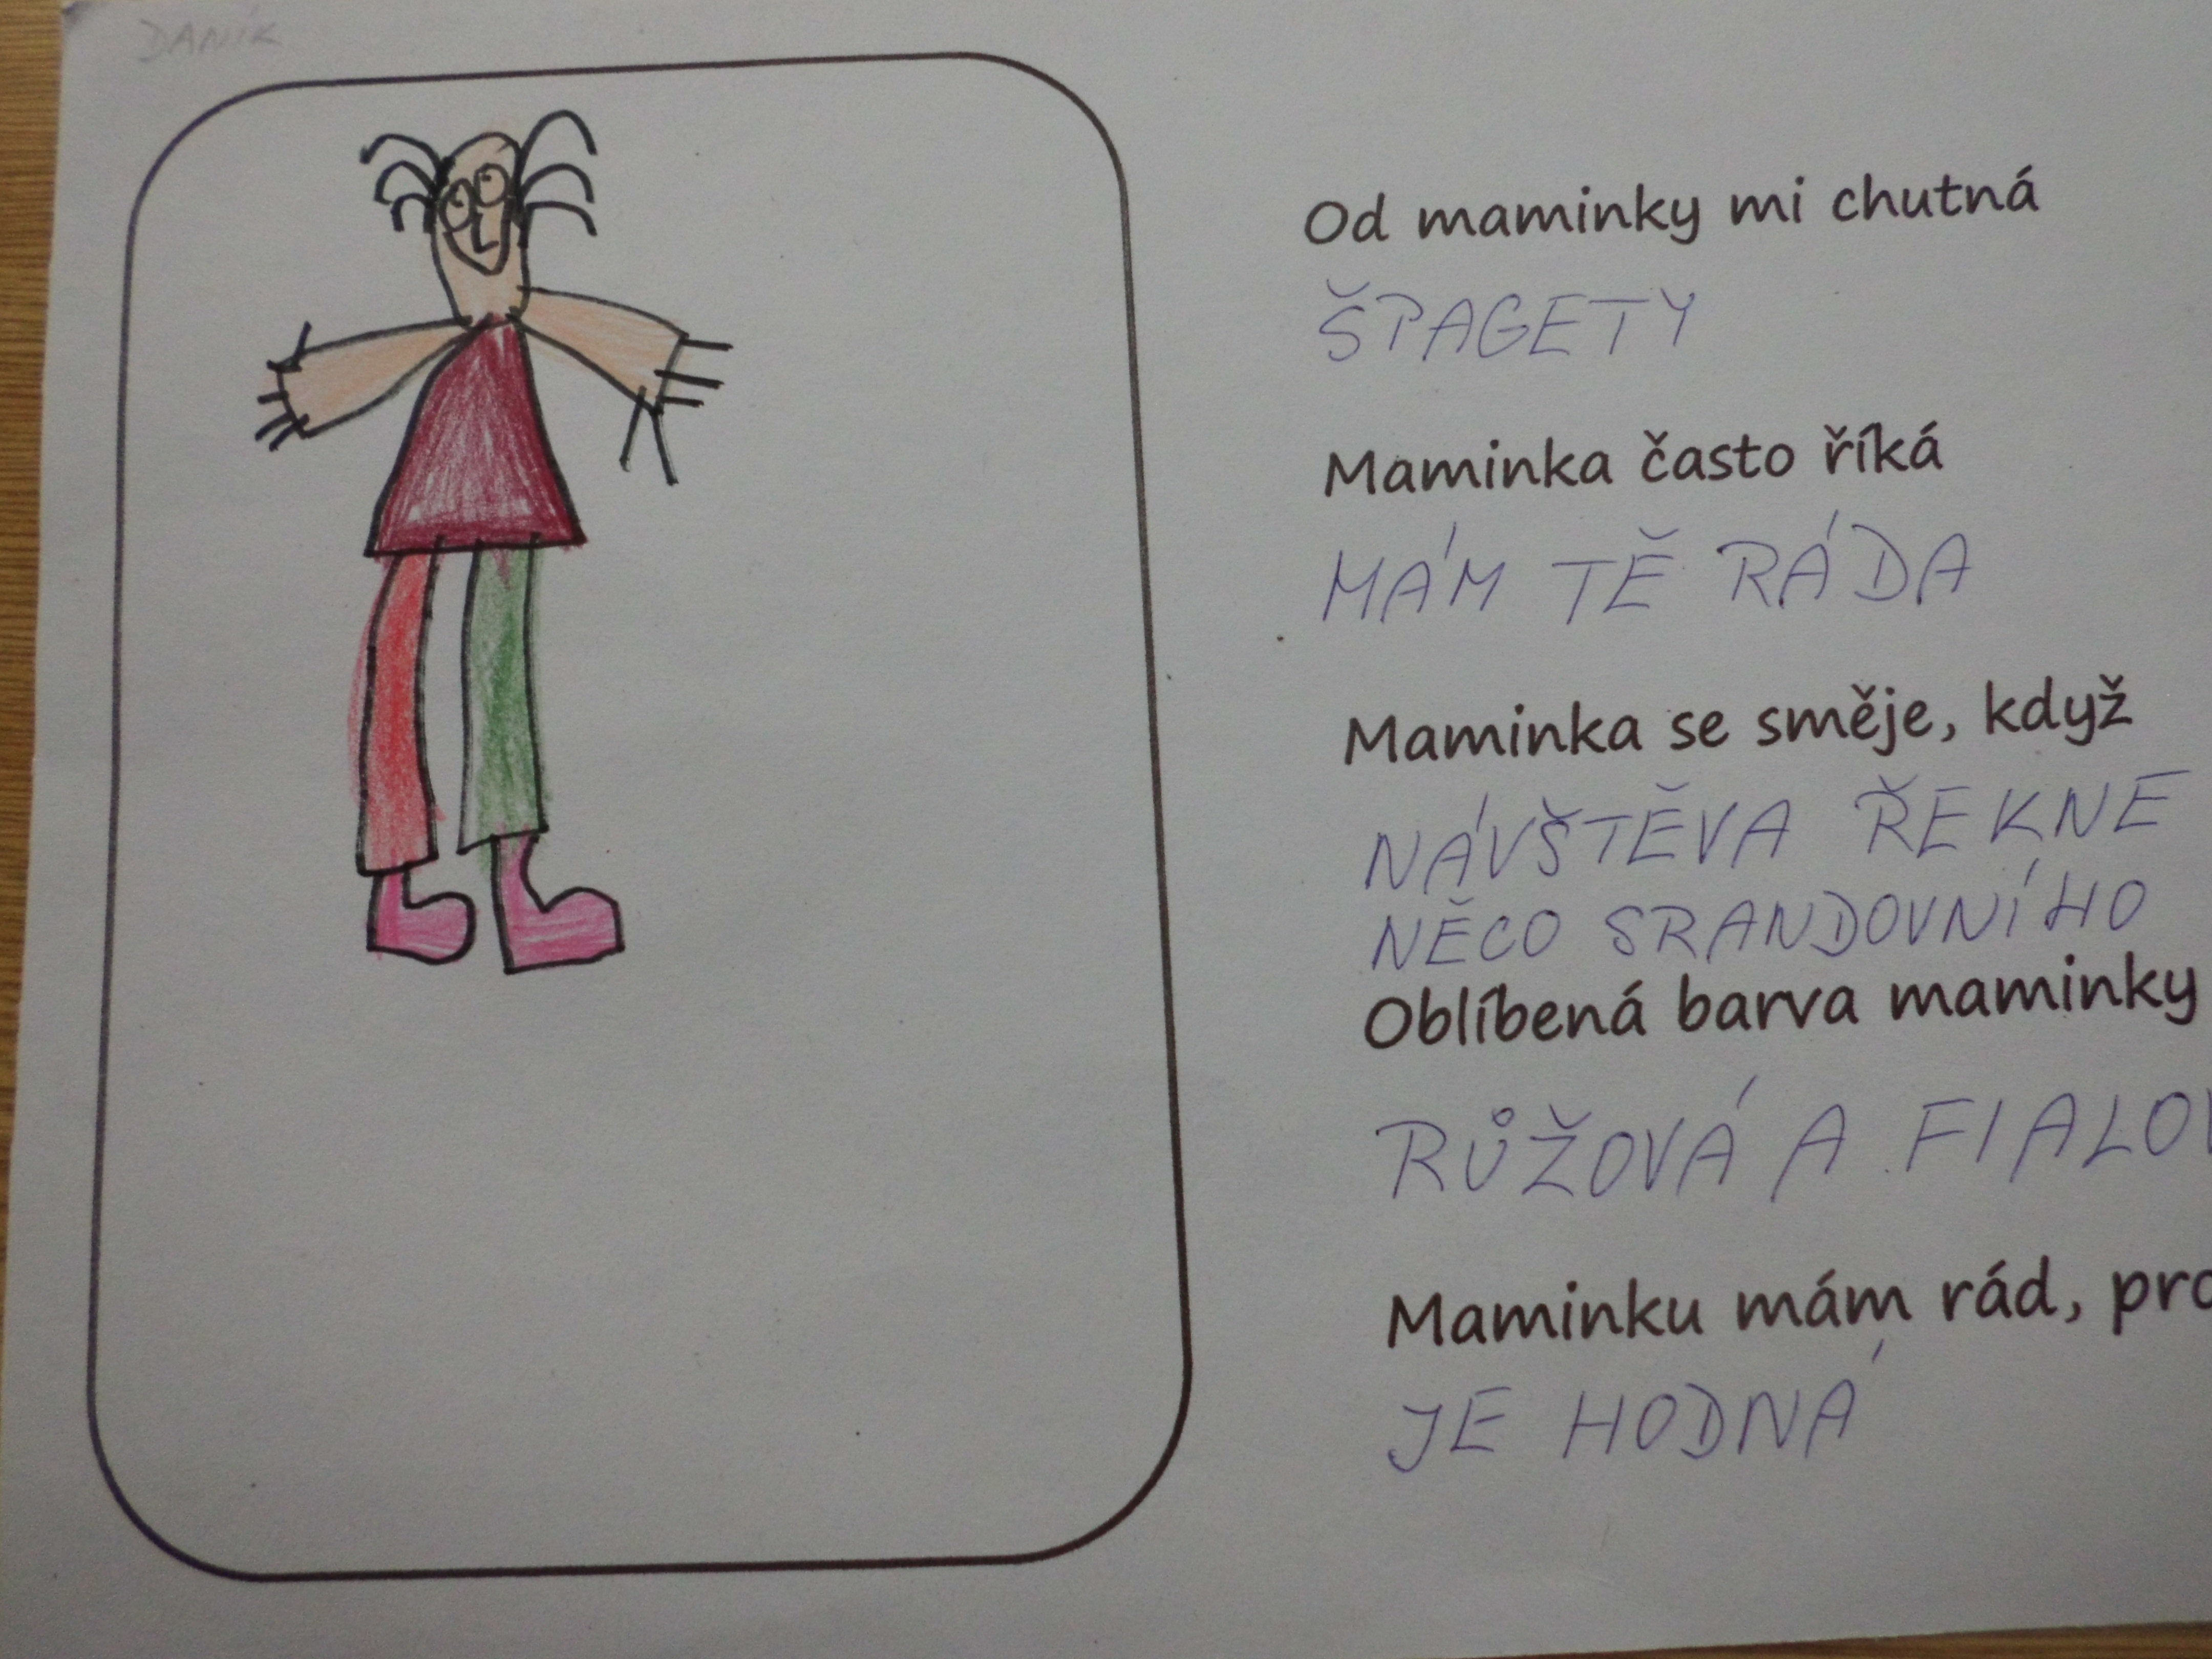 DANÍK
Od maminky mi chutná
ŠPAGETY
Maminka často říká
MÁM TĚ RÁDA
Maminka se směje, když
NÁVŠTĚVA ŘEKNE
NĚCO SRANDOVNÍHO
Oblíbená barva maminky
RŮŽOVÁ A FIALOV
Maminku mám rád, pro
JE HODNÁ